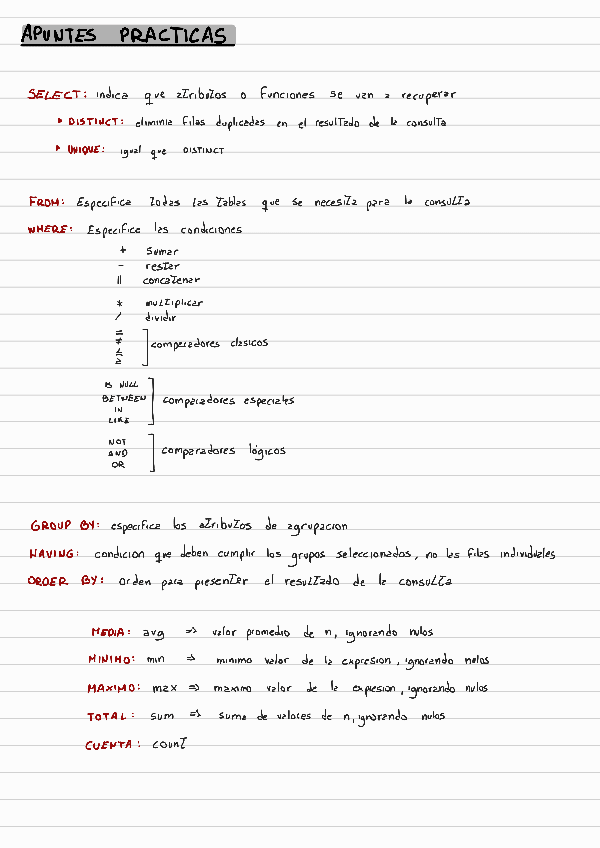 APUNTES PRACTICAS
SELECT: indica que atributos o funciones se van a recuperar
‣ DISTINCT: elimina filas duplicadas en el resultado de la consulta
‣ UNIQUE: igual que DISTINCT
FROM: Especifica todas las tablas que se necesita para la consulta
WHERE: Especifica las condiciones
+ Sumar
- restar
|| concatenar
* multiplicar
/ dividir
=
≠
≤
≥
comparadores clasicos
IS NULL
BETWEEN
IN
LIKE
comparadores especiales
NOT
AND
OR
comparadores lógicos
GROUP BY: especifica los atributos de agrupacion
HAVING: condicion que deben cumplir los grupos seleccionados, no las filas individuales
ORDER BY: orden para presentar el resultado de la consulta
MEDIA: avg => valor promedio de n, ignorando nulos
MINIMO: min => minimo valor de la expresion, ignorando nulos
MAXIMO: max => maximo valor de la expresion, ignorando nulos
TOTAL: sum => suma de valores de n, ignorando nulos
CUENTA: count